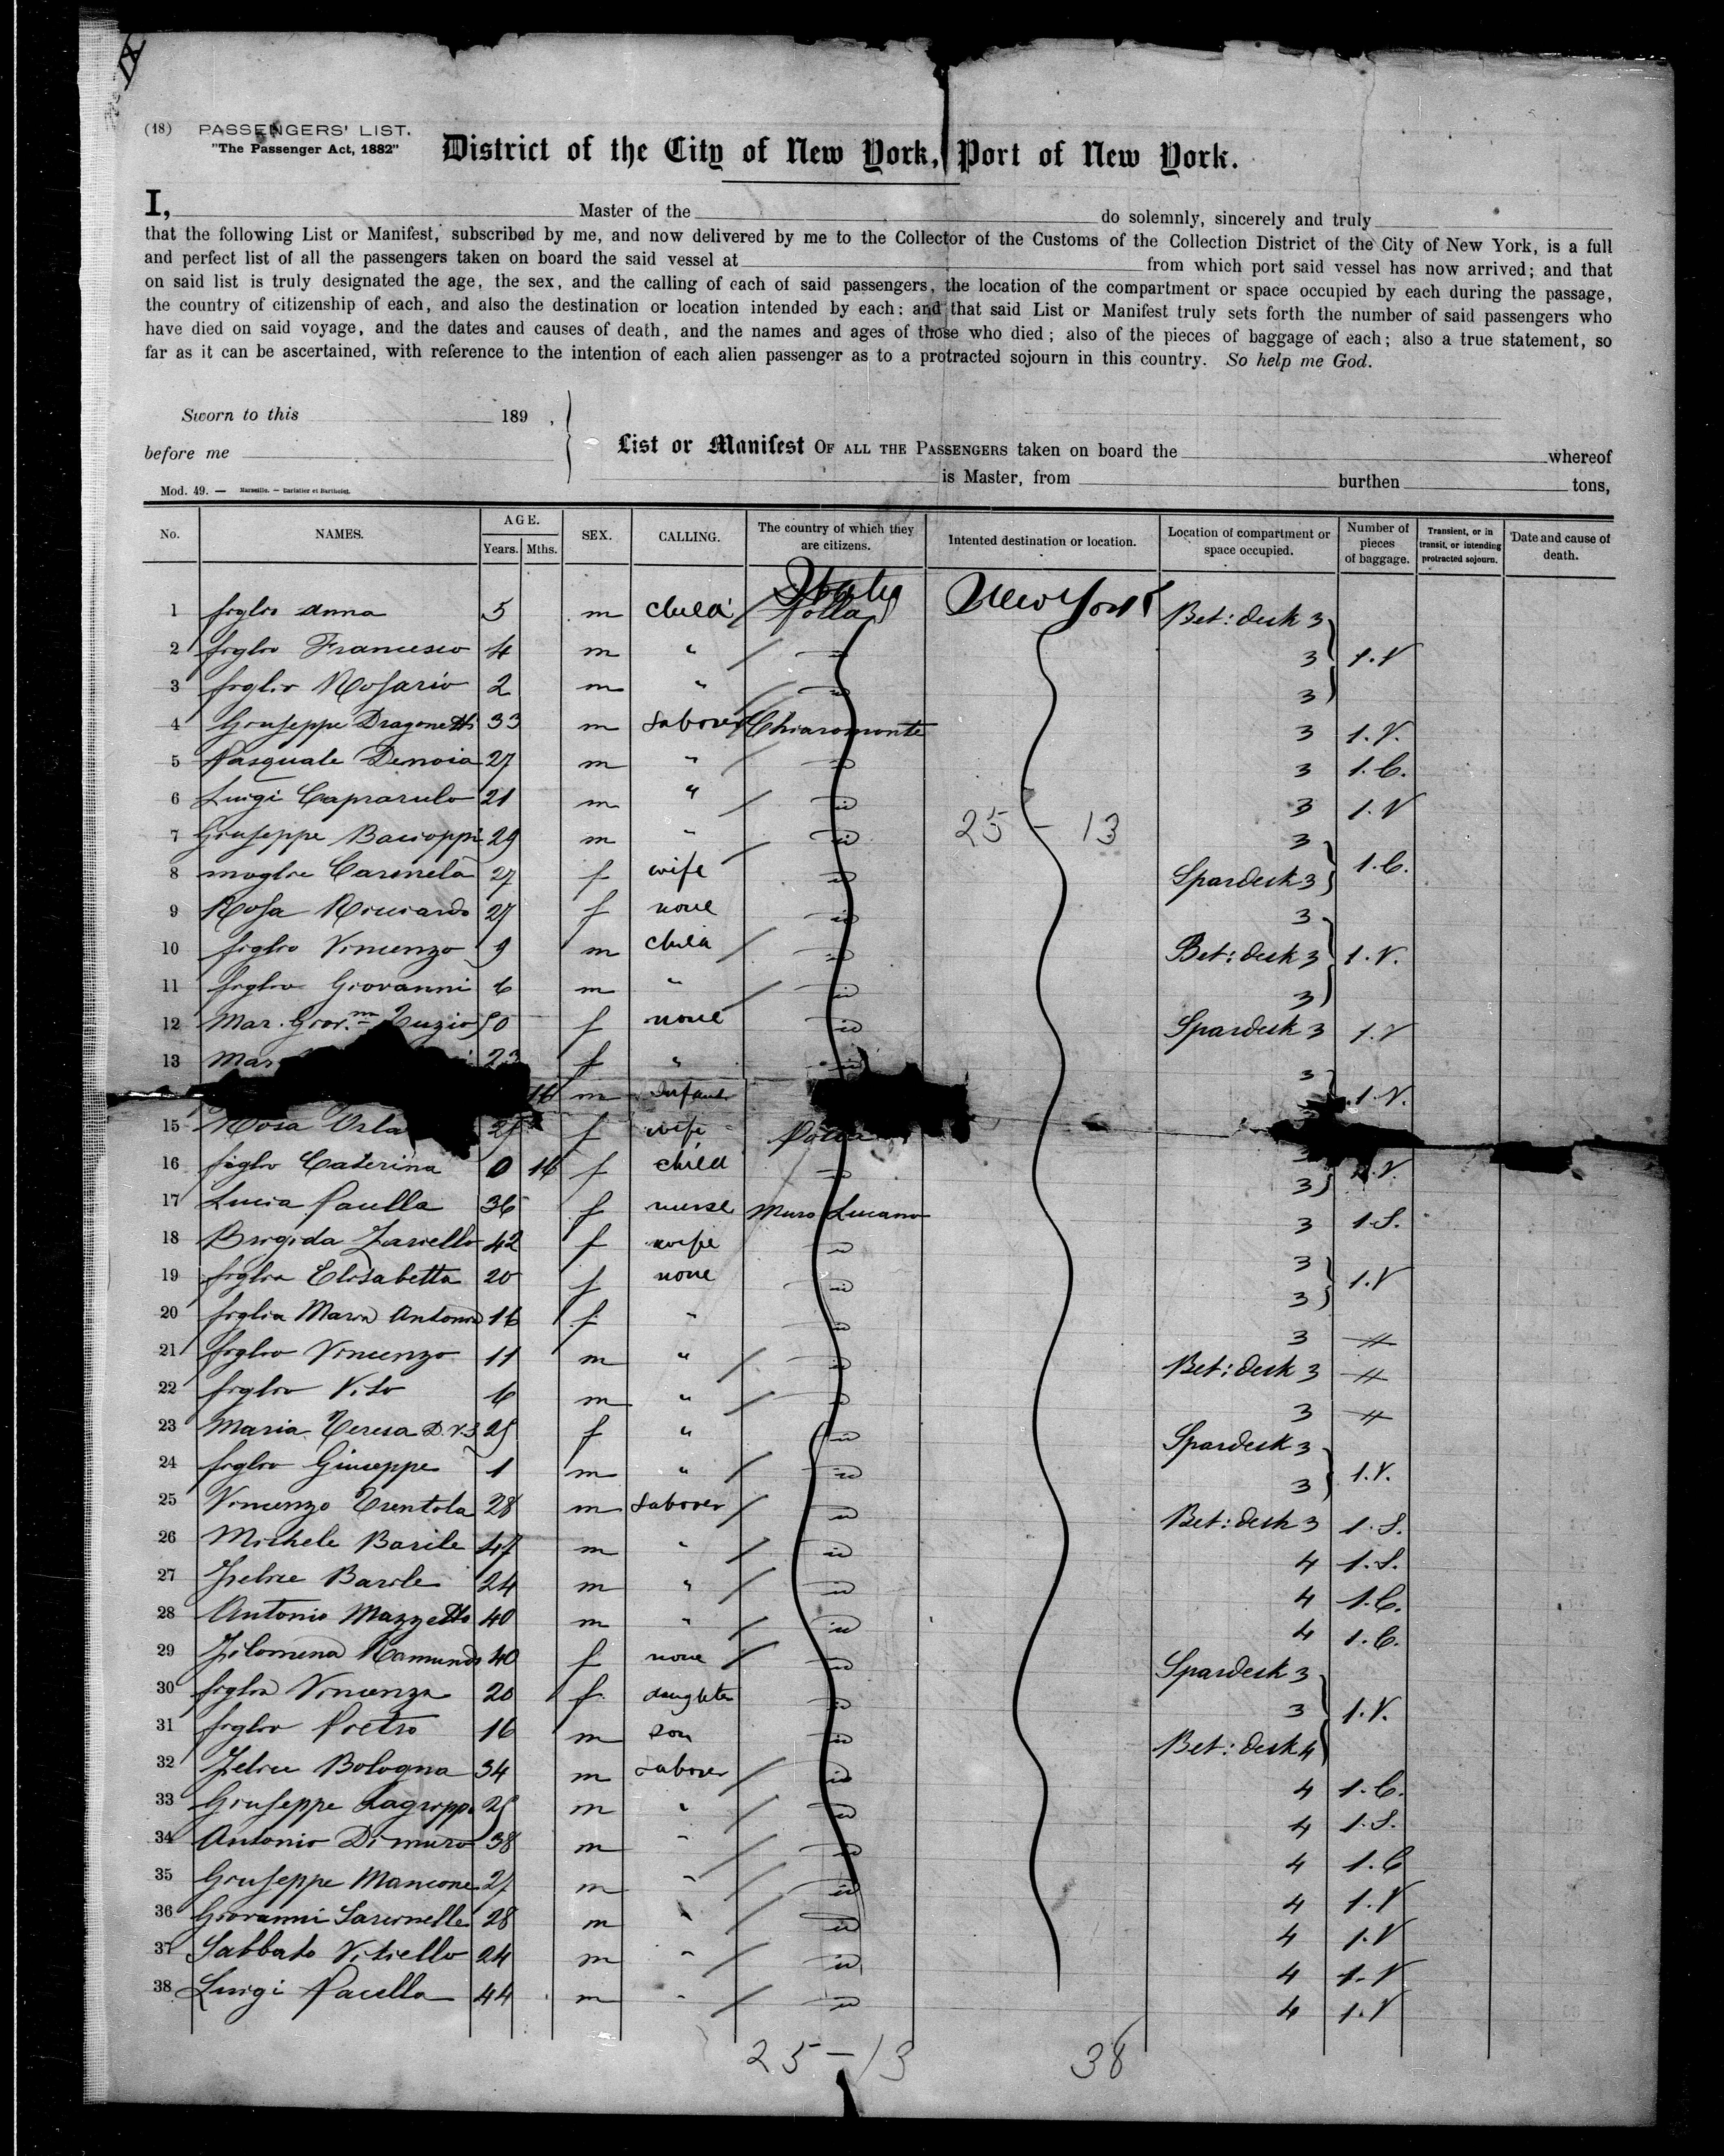 IX
(18) PASSENGERS' LIST.
"The Passenger Act, 1882"
District of the City of New York, Port of New York.
I, Master of the do solemnly, sincerely and truly
that the following List or Manifest, subscribed by me, and now delivered by me to the Collector of the Customs of the Collection District of the City of New York, is a full
and perfect list of all the passengers taken on board the said vessel at from which port said vessel has now arrived; and that
on said list is truly designated the age, the sex, and the calling of each of said passengers, the location of the compartment or space occupied by each during the passage,
the country of citizenship of each, and also the destination or location intended by each: and that said List or Manifest truly sets forth the number of said passengers who
have died on said voyage, and the dates and causes of death, and the names and ages of those who died; also of the pieces of baggage of each; also a true statement, so
far as it can be ascertained, with reference to the intention of each alien passenger as to a protracted sojourn in this country. So help me God.
Sworn to this 189 ,
before me
List or Manifest OF ALL THE PASSENGERS taken on board the whereof
is Master, from burthen tons,
Mod. 49. — Marseille. — Barlatier et Barthelet.
No. NAMES. AGE. Years. Mths. SEX. CALLING. The country of which they are citizens. Intented destination or location. Location of compartment or space occupied. Number of pieces of baggage. Transient, or in transit, or intending protracted sojourn. Date and cause of death.
Italy New York
1 figlio Anna 5 m child Polla Bet: deck 3
2 figlio Francesco 4 m " id 3 1.V
3 figlio Rosario 2 m " id 3
4 Giuseppe Dragonetti 33 m Laborer Chiaromonte 3 1.V.
5 Pasquale Denoia 27 m " id 3 1.C.
6 Luigi Caprarulo 21 m " id 3 1.V
7 Giuseppe Bacioppi 29 m " id 25 - 13 3
8 moglie Carmela 27 f wife id Spardeck 3 1.C.
9 Rosa Ricciardo 27 f none id 3
10 figlio Vincenzo 9 m child id Bet: deck 3 1.V.
11 figlio Giovanni 6 m " id 3
12 Mar. Giov. Tuzio 50 f none id Spardeck 3 1.V
13 Mar 23 f " id 3
m Infant 1.V.
15 Rosa Orla f wife Polla
16 figlio Caterina 0 f child id 3 1.V.
17 Lucia Pacella 36 f nurse Muro Lucano 3 1.S.
18 Brigida Zariello 42 f wife id 3
19 figlia Elisabetta 20 f none id 3 1.V
20 figlia Maria Antonia 16 f " id 3 "
21 figlio Vincenzo 11 m " id Bet: deck 3 "
22 figlio Vito 6 m " id 3 "
23 Maria Teresa 25 f " id Spardeck 3
24 figlio Giuseppe 1 m " id 3 1.V.
25 Vincenzo Trentola 28 m Laborer id Bet: deck 3 1.S.
26 Michele Barile 47 m " id 4 1.S.
27 Felice Barile 24 m " id 4 1.C.
28 Antonio Mazzetto 40 m " id 4 1.C.
29 Filomena Ramundo 40 f none id Spardeck 3
30 figlia Vincenza 20 f daughter id 3 1.V.
31 figlio Pietro 16 m son id Bet: deck 4
32 Felice Bologna 34 m Laborer id 4 1.C.
33 Giuseppe Lagrippo 25 m " id 4 1.S.
34 Antonio Di muro 38 m " id 4 1.C
35 Giuseppe Mancone 27 m " id 4 1.V
36 Giovanni 28 m " id 4 1.V
37 Sabbato Vitiello 24 m " id 4 1.V
38 Luigi Pacella 44 m " id 4 1.V
25-13 38